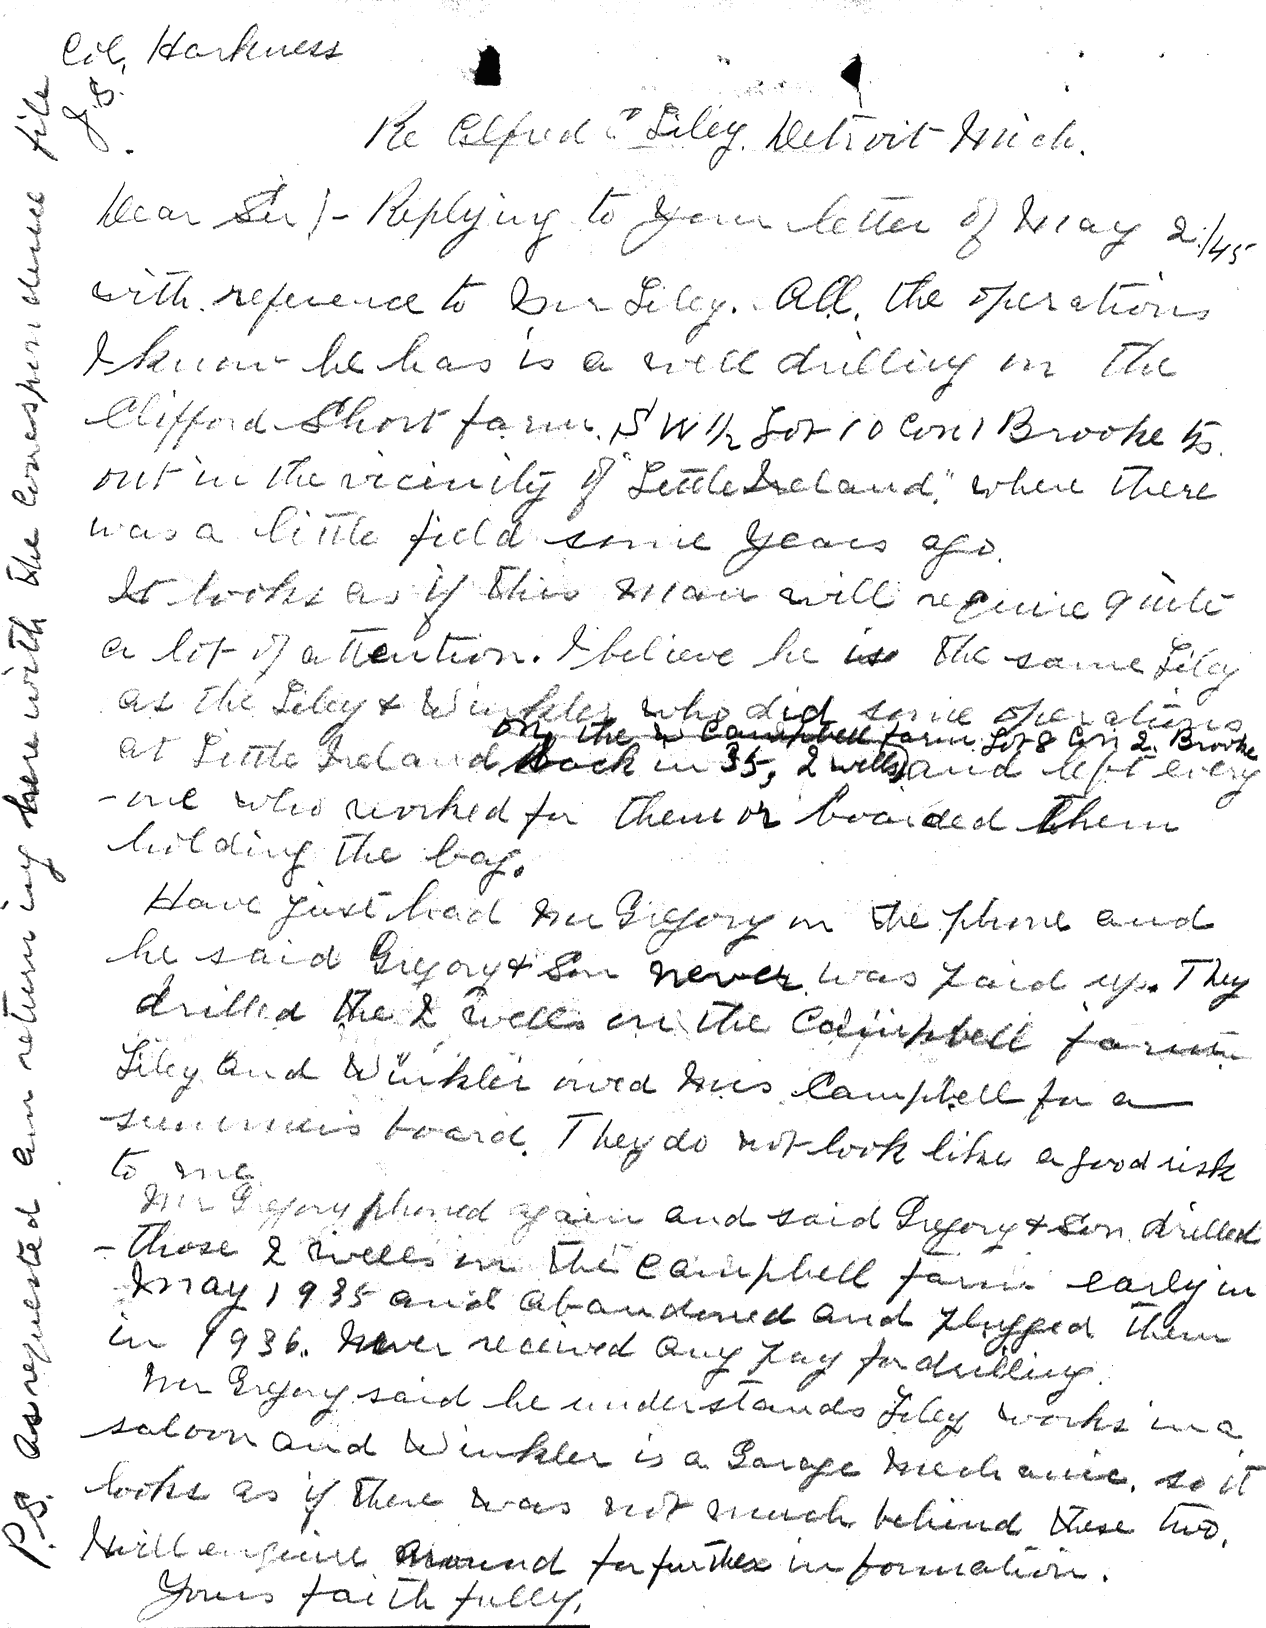 Col. Harkness
J.S.
Re Alfred Liley. Detroit Mich.
Dear Sir/- Replying to your letter of May 2/45
with reference to Mr Liley. All. the operations
I know he has is a well drilling on the
Clifford Short farm. S W 1/2 Lot 10 Con 1 Brooke tp.
out in the vicinity of "Little Ireland", where there
was a little field some years ago.
It looks as if this man will require quite
a lot of attention. I believe he is the same Liley
as the Liley & Winkler who did some operations
on, the W Campbell farm Lot 8 Con 2. Brooke
at Little Ireland back in 35, 2 wells) and left every
-one who worked for them or boarded them
holding the bag.
Have just had Mr Gregory on the phone and
he said Gregory & Son never was paid up. They
drilled the 2 wells on the Campbell farm
Liley and Winkler owed Mrs. Campbell for a
summers board. They do not look like a good risk
to me
Mr Gregory phoned again and said Gregory & Son drilled
- those 2 wells on the Campbell farm early in
May 1935 and abandoned and plugged them
in 1936. Never received any pay for drilling.
Mr Gregory said he understands Liley works in a
saloon and Winkler is a Garage Mechanic. so it
looks as if there was not much behind these two.
I will enquire around for further information.
Yours faithfully,
P.S. As requested am returning herewith the correspondence file